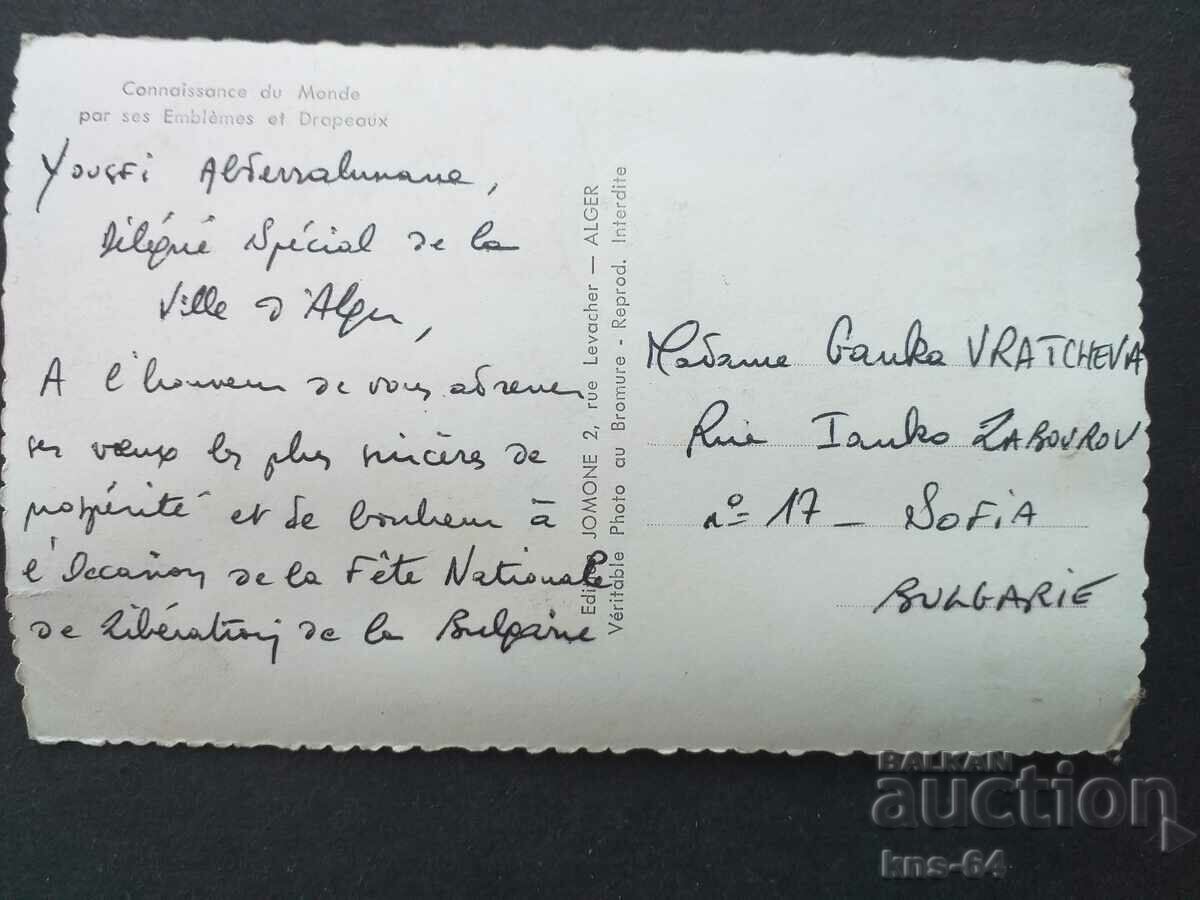 Connaissance du Monde
par ses Emblèmes et Drapeaux
Youssfi Abderrahmane,
Délégué Spécial de la
Ville d'Alger,
A l'honneur de vous adresser
ses vœux les plus sincères de
prospérité et de bonheur à
l'Occasion de la Fête Nationale
de Libération de la Bulgarie
JOMONE 2, rue Levacher — ALGER
Véritable Photo au Bromure - Reprod. Interdite
Madame Ganka VRATCHEVA
Rue Ianko ZABOUROV
n° 17 - SOFIA
BULGARIE
BALKAN
auction
kns-64